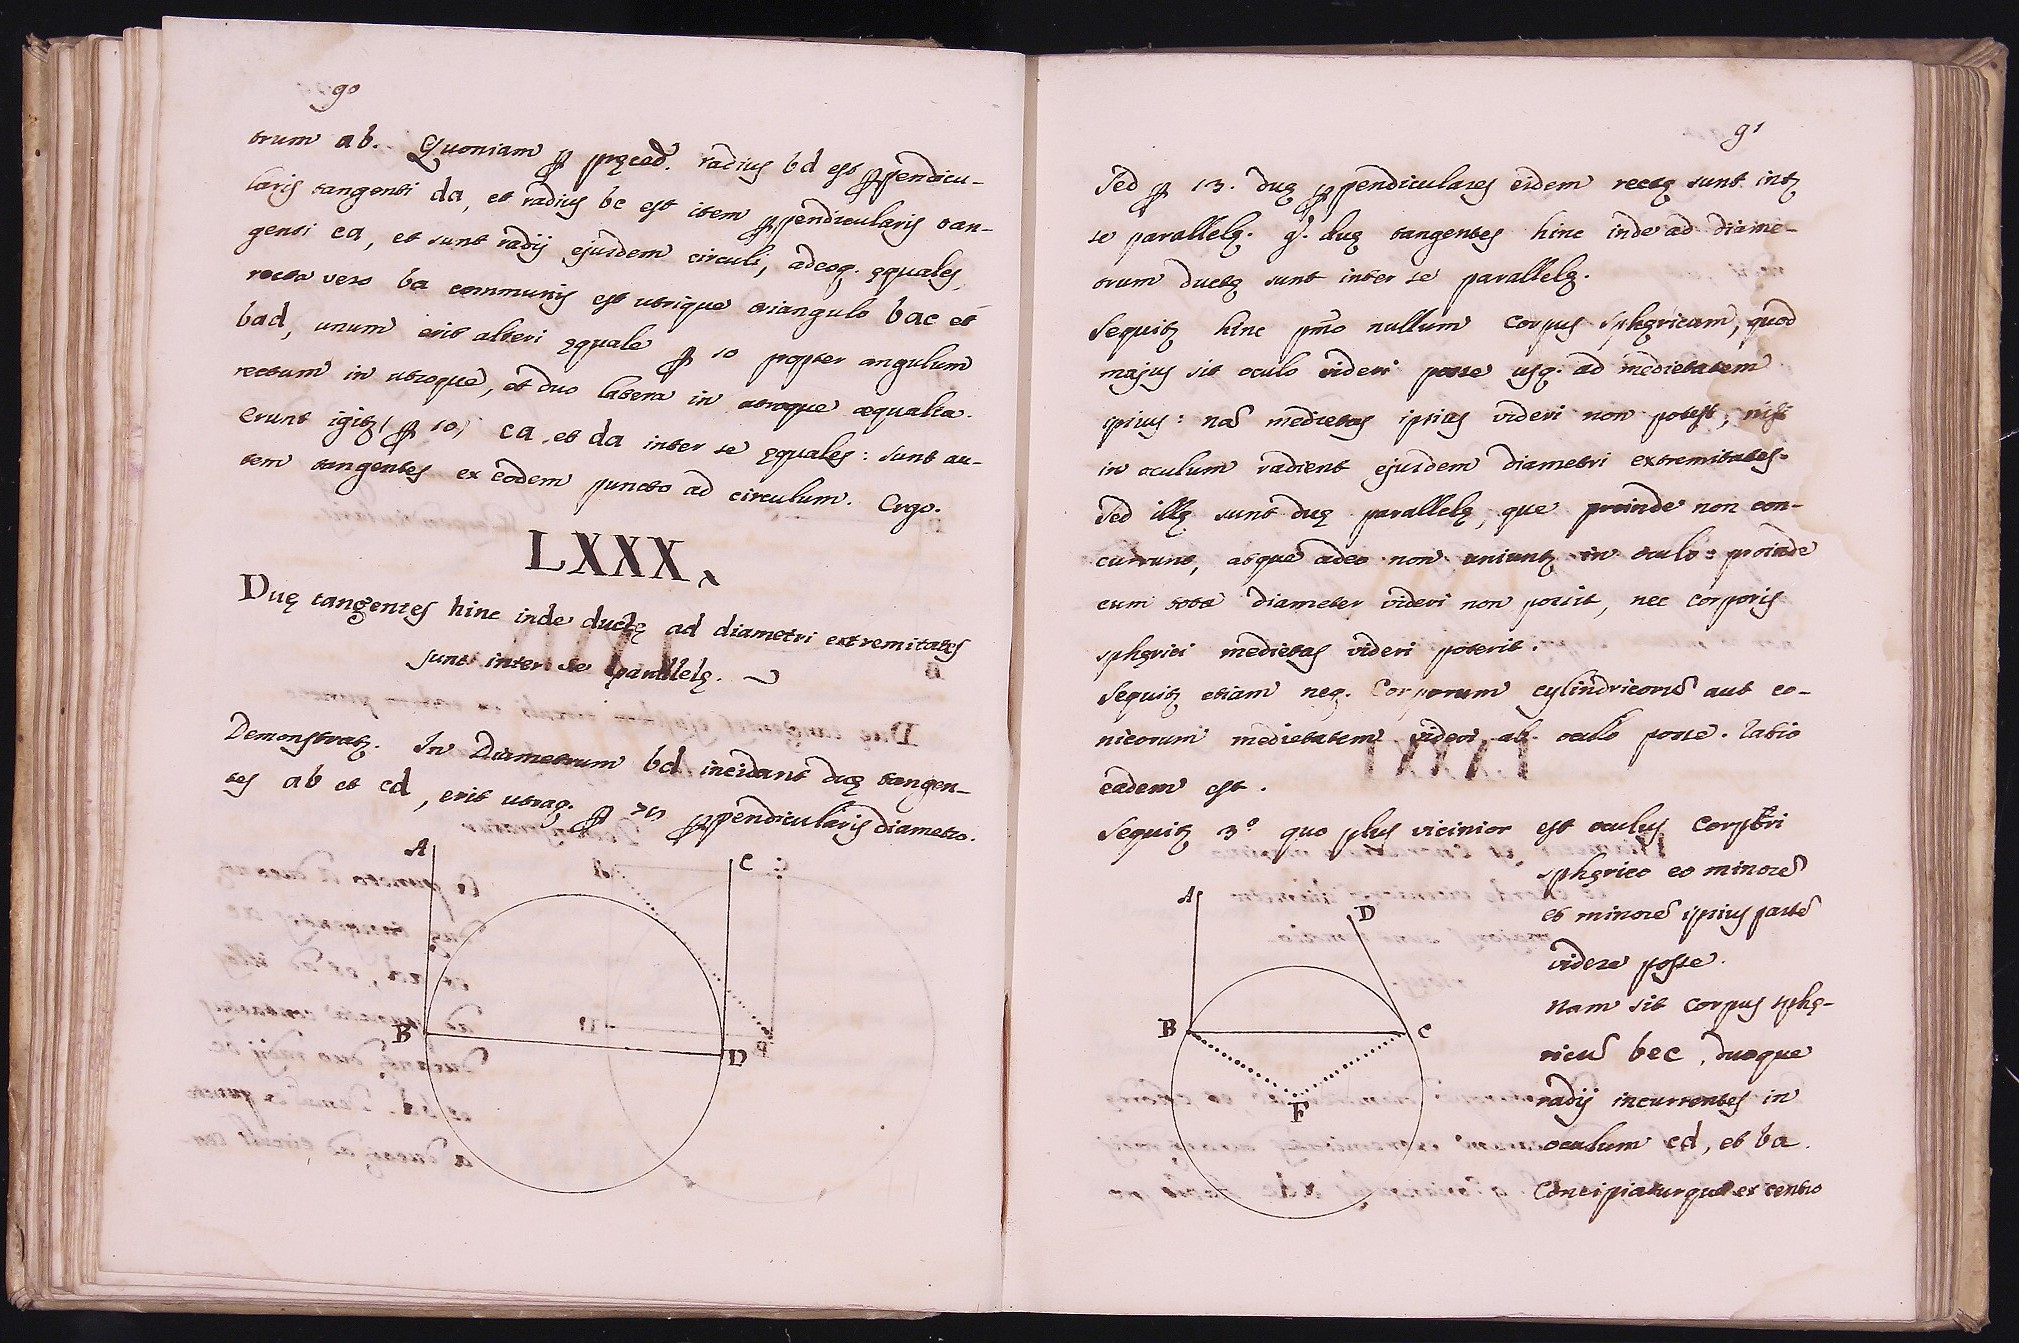 90
trum ab. Quoniam ꝑ pręced. radius bd est ꝑpendicu-
laris tangenti da, et radius bc est item ꝑpendicularis tan-
genti ca, et sunt radij ejusdem circuli, adeoq. ęquales,
recta vero ba communis est utrique triangulo bac et
bad, unum erit alteri ęquale ꝑ 10 propter angulum
rectum in utroque, et duo latera in utroque æqualia.
Erunt igitꝫ (ꝑ 10,) ca et da inter se ęquales: sunt au-
tem tangentes ex eodem puncto ad circulum. Ergo.
LXXX.
Duę tangentes hinc inde ductę ad diametri extremitates
sunt inter se parallelę.
Demonstratꝫ. In Diametrum bd incidant duę tangen-
tes ab et cd, erit utraq. ꝑ ꝑpendicularis diametro.
A
C
B
D
91
Sed ꝑ 13. duę ꝑpendiculares eidem rectę sunt intꝫ
se parallelę. g. duę tangentes hinc inde ad diame-
trum ductę sunt inter se parallelę.
Sequitꝫ hinc pmo nullum corpus sphęricum, quod
majus sit oculo videri posse usq. ad medietatem
ipsius: nā medietas ipsius videri non potest, nisi
in oculum radient ejusdem diametri extremitates.
Sed illę sunt duę parallelę, que proinde non con-
currunt, atque adeo non uniuntꝫ in oculo: proinde
cum tota diameter videri non possit, nec corporis
sphęrici medietas videri poterit.
Sequitꝫ etiam neq. Corporum cylindricorū aut co-
nicorum medietatem videri ab oculo posse. ratio
eadem est.
Sequitꝫ 3º quo plus vicinior est oculus Corpori
sphęrico eo minorē
et minorē ipsius partē
videre posse.
Nam sit corpus sphę-
ricū bec, duoque
radij incurrentes in
oculum cd, et ba.
Concipiaturque ex centro
A
D
B
C
F